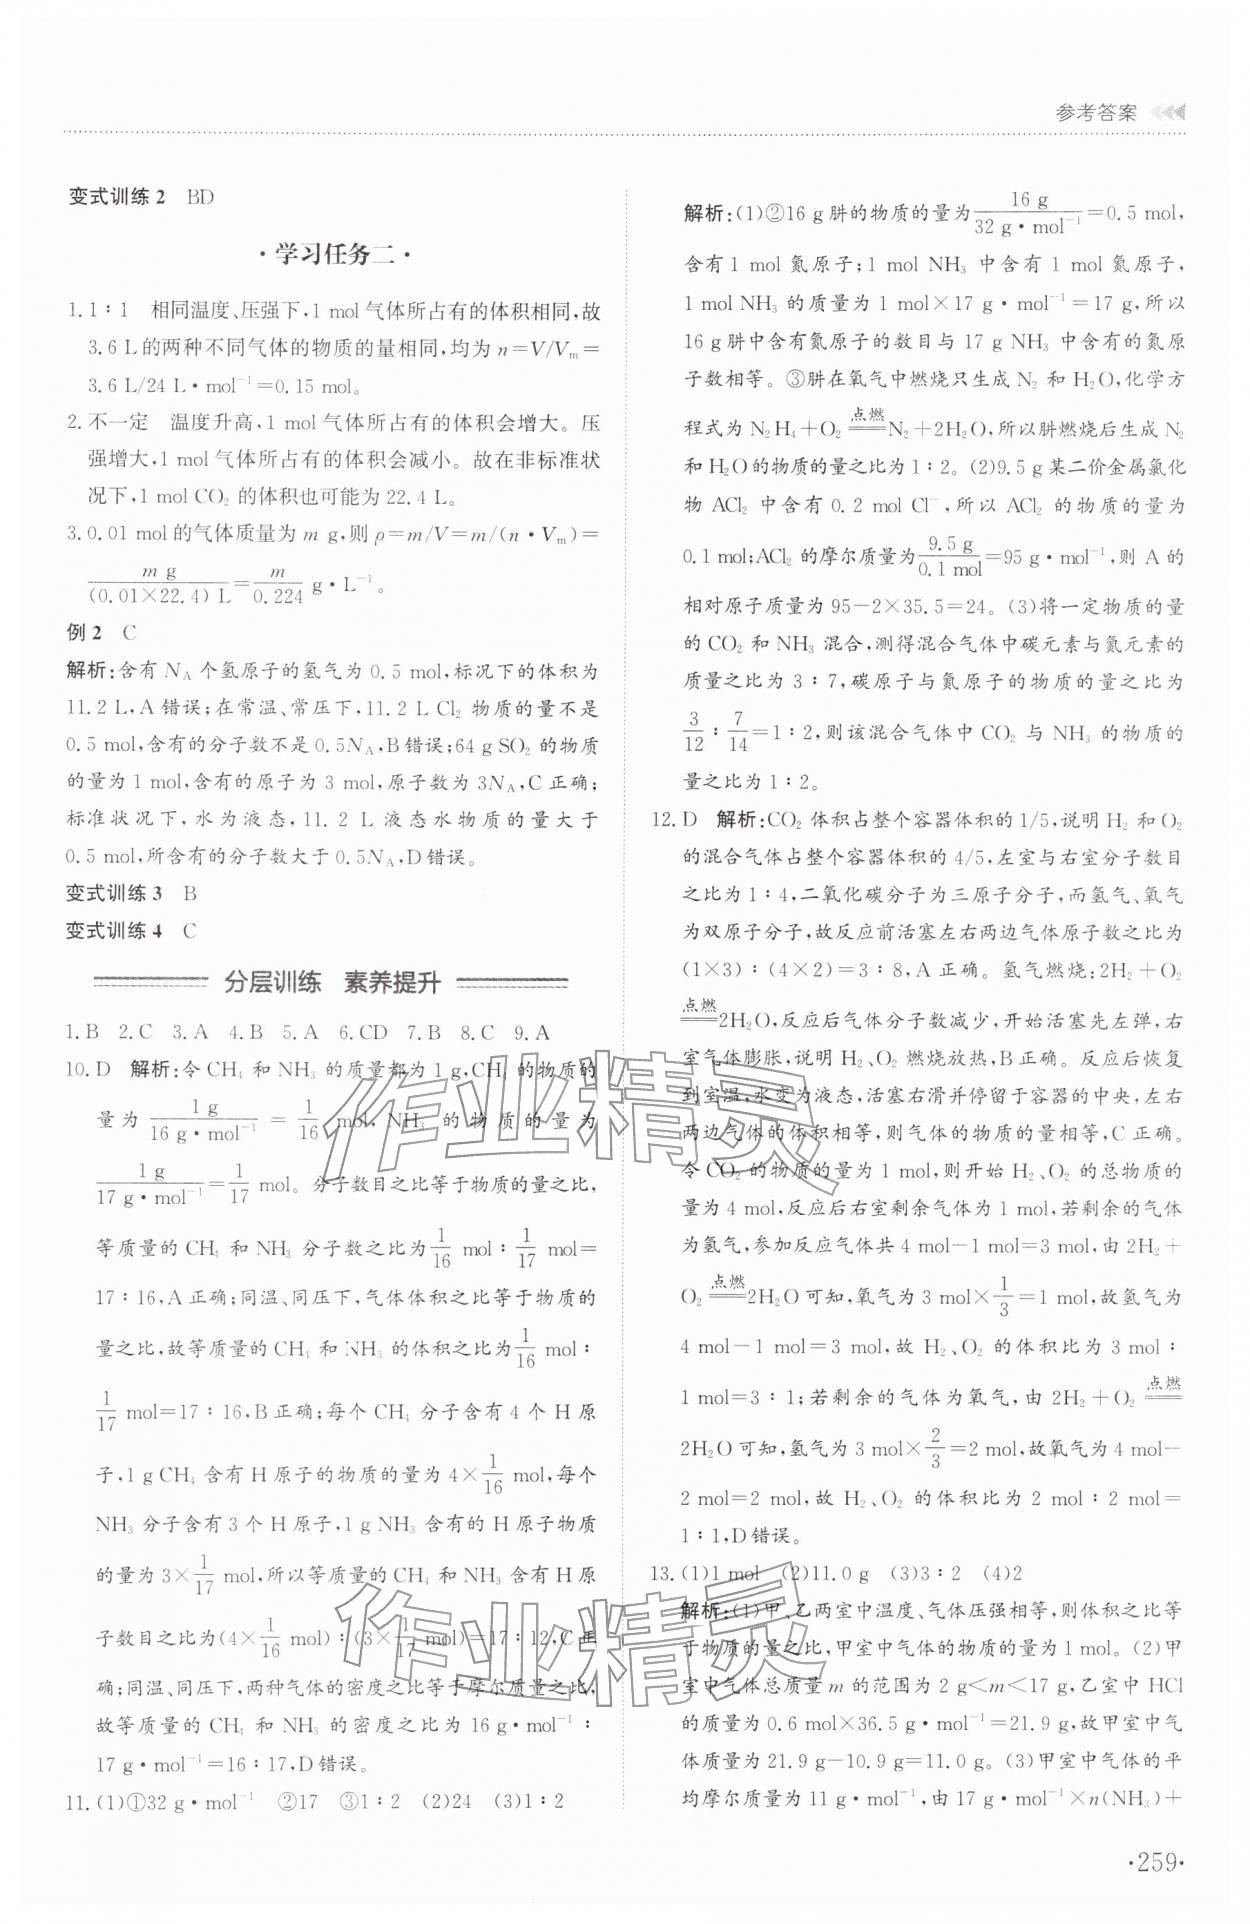 参考答案
变式训练2 BD
·学习任务二·
1.1∶1 相同温度、压强下,1 mol气体所占有的体积相同,故
3.6 L的两种不同气体的物质的量相同,均为n=V/Vm=
3.6 L/24 L·mol⁻¹=0.15 mol。
2.不一定 温度升高,1 mol气体所占有的体积会增大。压
强增大,1 mol气体所占有的体积会减小。故在非标准状
况下,1 mol CO₂的体积也可能为22.4 L。
3.0.01 mol的气体质量为m g,则ρ=m/V=m/(n·Vm)=
m g/(0.01×22.4) L=m/0.224 g·L⁻¹。
例2 C
解析:含有N_A个氢原子的氢气为0.5 mol,标况下的体积为
11.2 L,A错误;在常温、常压下,11.2 L Cl₂物质的量不是
0.5 mol,含有的分子数不是0.5N_A,B错误;64 g SO₂的物质
的量为1 mol,含有的原子为3 mol,原子数为3N_A,C正确;
标准状况下,水为液态,11.2 L液态水物质的量大于
0.5 mol,所含有的分子数大于0.5N_A,D错误。
变式训练3 B
变式训练4 C
分层训练 素养提升
1.B 2.C 3.A 4.B 5.A 6.CD 7.B 8.C 9.A
10.D 解析:令CH₄和NH₃的质量都为1 g,CH₄的物质的
量为1 g/16 g·mol⁻¹=1/16 mol,NH₃的物质的量为
1 g/17 g·mol⁻¹=1/17 mol。分子数目之比等于物质的量之比,
等质量的CH₄和NH₃分子数之比为1/16 mol∶1/17 mol=
17∶16,A正确;同温、同压下,气体体积之比等于物质的
量之比,故等质量的CH₄和NH₃的体积之比为1/16 mol∶
1/17 mol=17∶16,B正确;每个CH₄分子含有4个H原
子,1 g CH₄含有H原子的物质的量为4×1/16 mol,每个
NH₃分子含有3个H原子,1 g NH₃含有的H原子物质
的量为3×1/17 mol,所以等质量的CH₄和NH₃含有H原
子数目之比为(4×1/16 mol)∶(3×1/17 mol)=17∶12,C正
确;同温、同压下,两种气体的密度之比等于摩尔质量之比,
故等质量的CH₄和NH₃的密度之比为16 g·mol⁻¹∶
17 g·mol⁻¹=16∶17,D错误。
11.(1)①32 g·mol⁻¹ ②17 ③1∶2 (2)24 (3)1∶2
解析:(1)②16 g肼的物质的量为16 g/32 g·mol⁻¹=0.5 mol,
含有1 mol氮原子;1 mol NH₃中含有1 mol氮原子,
1 mol NH₃的质量为1 mol×17 g·mol⁻¹=17 g,所以
16 g肼中含有氮原子的数目与17 g NH₃中含有的氮原
子数相等。③肼在氧气中燃烧只生成N₂和H₂O,化学方
程式为N₂H₄+O₂=点燃=N₂+2H₂O,所以肼燃烧后生成N₂
和H₂O的物质的量之比为1∶2。(2)9.5 g某二价金属氯化
物ACl₂中含有0.2 mol Cl⁻,所以ACl₂的物质的量为
0.1 mol;ACl₂的摩尔质量为9.5 g/0.1 mol=95 g·mol⁻¹,则A的
相对原子质量为95-2×35.5=24。(3)将一定物质的量
的CO₂和NH₃混合,测得混合气体中碳元素与氮元素的
质量之比为3∶7,碳原子与氮原子的物质的量之比为
3/12∶7/14=1∶2,则该混合气体中CO₂与NH₃的物质的
量之比为1∶2。
12.D 解析:CO₂体积占整个容器体积的1/5,说明H₂和O₂
的混合气体占整个容器体积的4/5,左室与右室分子数目
之比为1∶4,二氧化碳分子为三原子分子,而氢气、氧气
为双原子分子,故反应前活塞左右两边气体原子数之比为
(1×3)∶(4×2)=3∶8,A正确。氢气燃烧:2H₂+O₂
=点燃=2H₂O,反应后气体分子数减少,开始活塞先左弹,右
室气体膨胀,说明H₂、O₂燃烧放热,B正确。反应后恢复
到室温,水变为液态,活塞右滑并停留于容器的中央,左右
两边气体的体积相等,则气体的物质的量相等,C正确。
令CO₂的物质的量为1 mol,则开始H₂、O₂的总物质的
量为4 mol,反应后右室剩余气体为1 mol,若剩余的气体
为氢气,参加反应气体共4 mol-1 mol=3 mol,由2H₂+
O₂=点燃=2H₂O可知,氧气为3 mol×1/3=1 mol,故氢气为
4 mol-1 mol=3 mol,故H₂、O₂的体积比为3 mol∶
1 mol=3∶1;若剩余的气体为氧气,由2H₂+O₂=点燃=
2H₂O可知,氢气为3 mol×2/3=2 mol,故氧气为4 mol-
2 mol=2 mol,故H₂、O₂的体积比为2 mol∶2 mol=
1∶1,D错误。
13.(1)1 mol (2)11.0 g (3)3∶2 (4)2
解析:(1)甲、乙两室中温度、气体压强相等,则体积之比等
于物质的量之比,甲室中气体的物质的量为1 mol。(2)甲
室中气体总质量m的范围为2 g<m<17 g,乙室中HCl
的质量为0.6 mol×36.5 g·mol⁻¹=21.9 g,故甲室中气
体质量为21.9 g-10.9 g=11.0 g。(3)甲室中气体的平
均摩尔质量为11 g·mol⁻¹,由17 g·mol⁻¹×n(NH₃)+
·259·
作业精灵
作业精灵